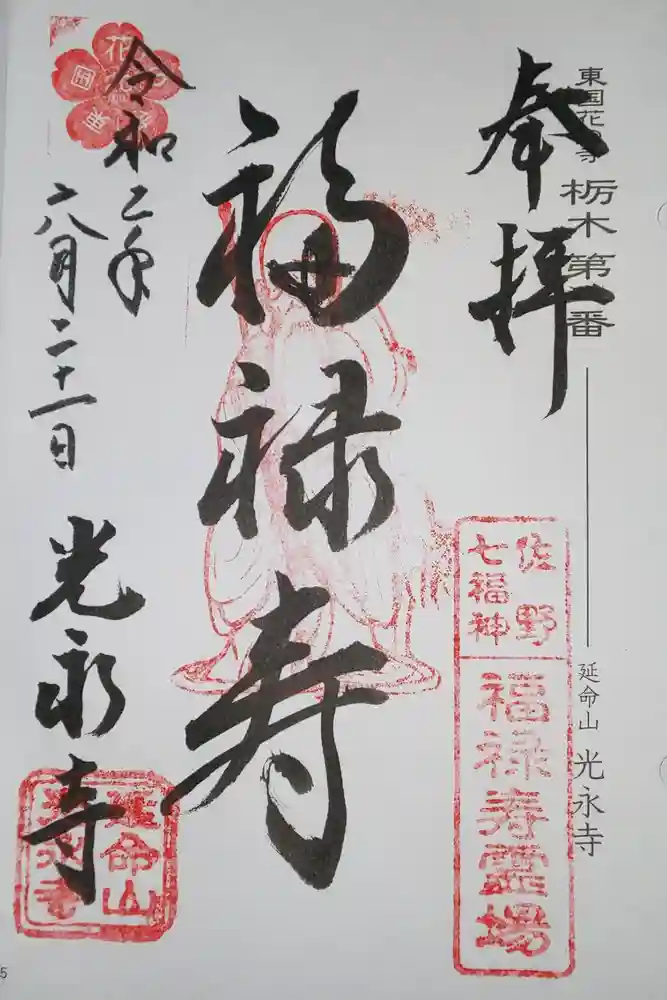 東国花の寺
栃木第 番
延命山 光永寺
奉拝
佐野
七福神
福禄寿霊場
福禄寿
令和二年
六月二十一日
光永寺
延命山
光永寺
5